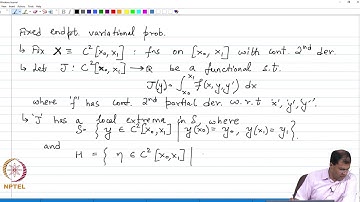 Fixed endpt variational prob.
↳ Fix X ≡ C²[x₀, x₁] : fns on [x₀, x₁] with cont. 2nd der.
↳ Let J : C²[x₀, x₁] → ℝ be a functional s.t.
J(y) = ∫_{x₀}^{x₁} f(x, y, y') dx
where 'f' has cont. 2nd partial der. w.r.t 'x', 'y', 'y''.
↳ 'J' has a local extrema in S, where
S = { y ∈ C²[x₀, x₁] | y(x₀) = y₀, y(x₁) = y₁ }.
and
H = { η ∈ C²[x₀, x₁] |
NPTEL